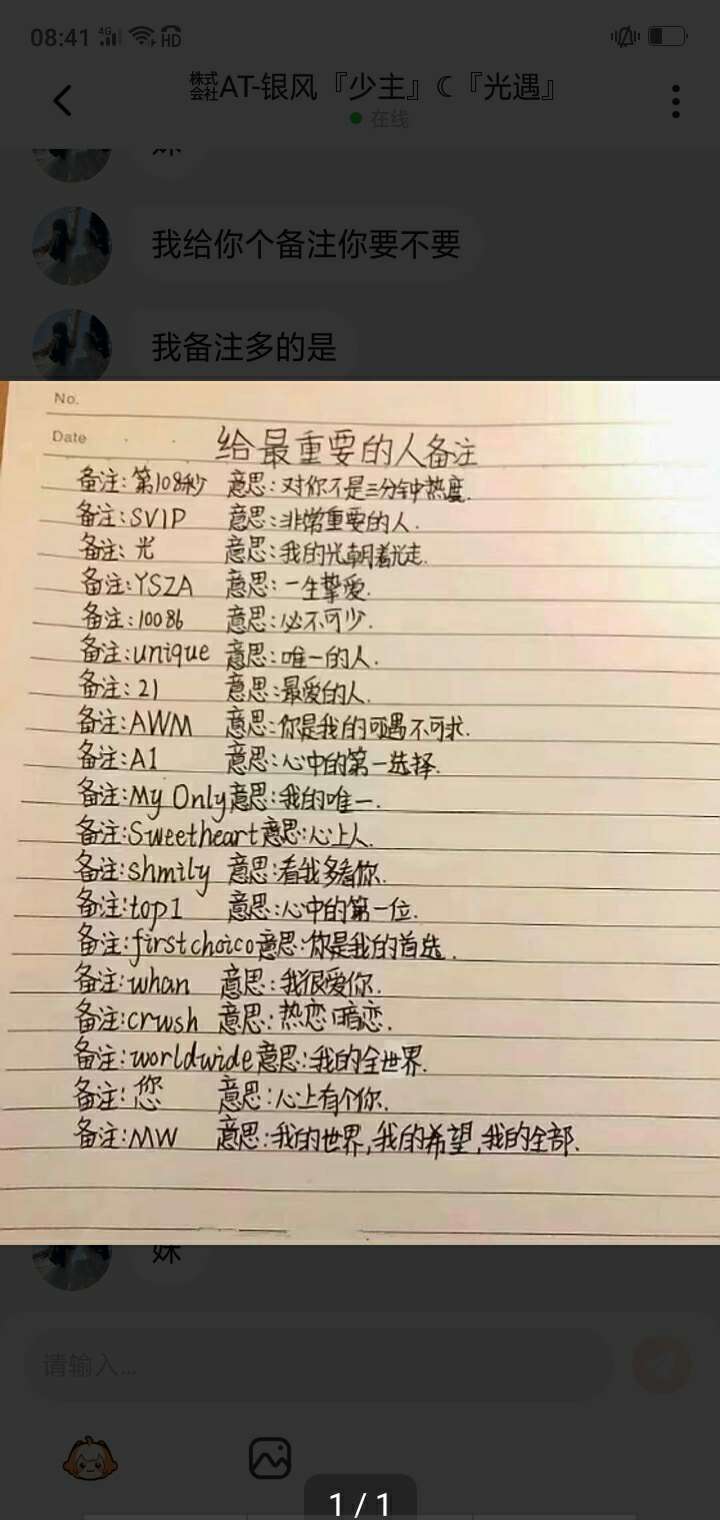 08:41 4G HD
株式会社AT-银风『少主』☾『光遇』
在线
妹
我给你个备注你要不要
我备注多的是
No.
Date
给最重要的人备注
备注:第108秒 意思:对你不是三分钟热度.
备注:SVIP 意思:非常重要的人.
备注:光 意思:我的光朝着光走.
备注:YSZA 意思:一生挚爱.
备注:10086 意思:必不可少.
备注:unique 意思:唯一的人.
备注:21 意思:最爱的人.
备注:AWM 意思:你是我的可遇不可求.
备注:A1 意思:心中的第一选择.
备注:My Only 意思:我的唯一.
备注:Sweetheart 意思:心上人.
备注:shmily 意思:看我多看你.
备注:top1 意思:心中的第一位.
备注:first choico 意思:你是我的首选.
备注:whan 意思:我很爱你.
备注:crwsh 意思:热恋 暗恋.
备注:worldwide 意思:我的全世界.
备注:您 意思:心上有个你.
备注:MW 意思:我的世界,我的希望,我的全部.
妹
请输入...
1 / 1